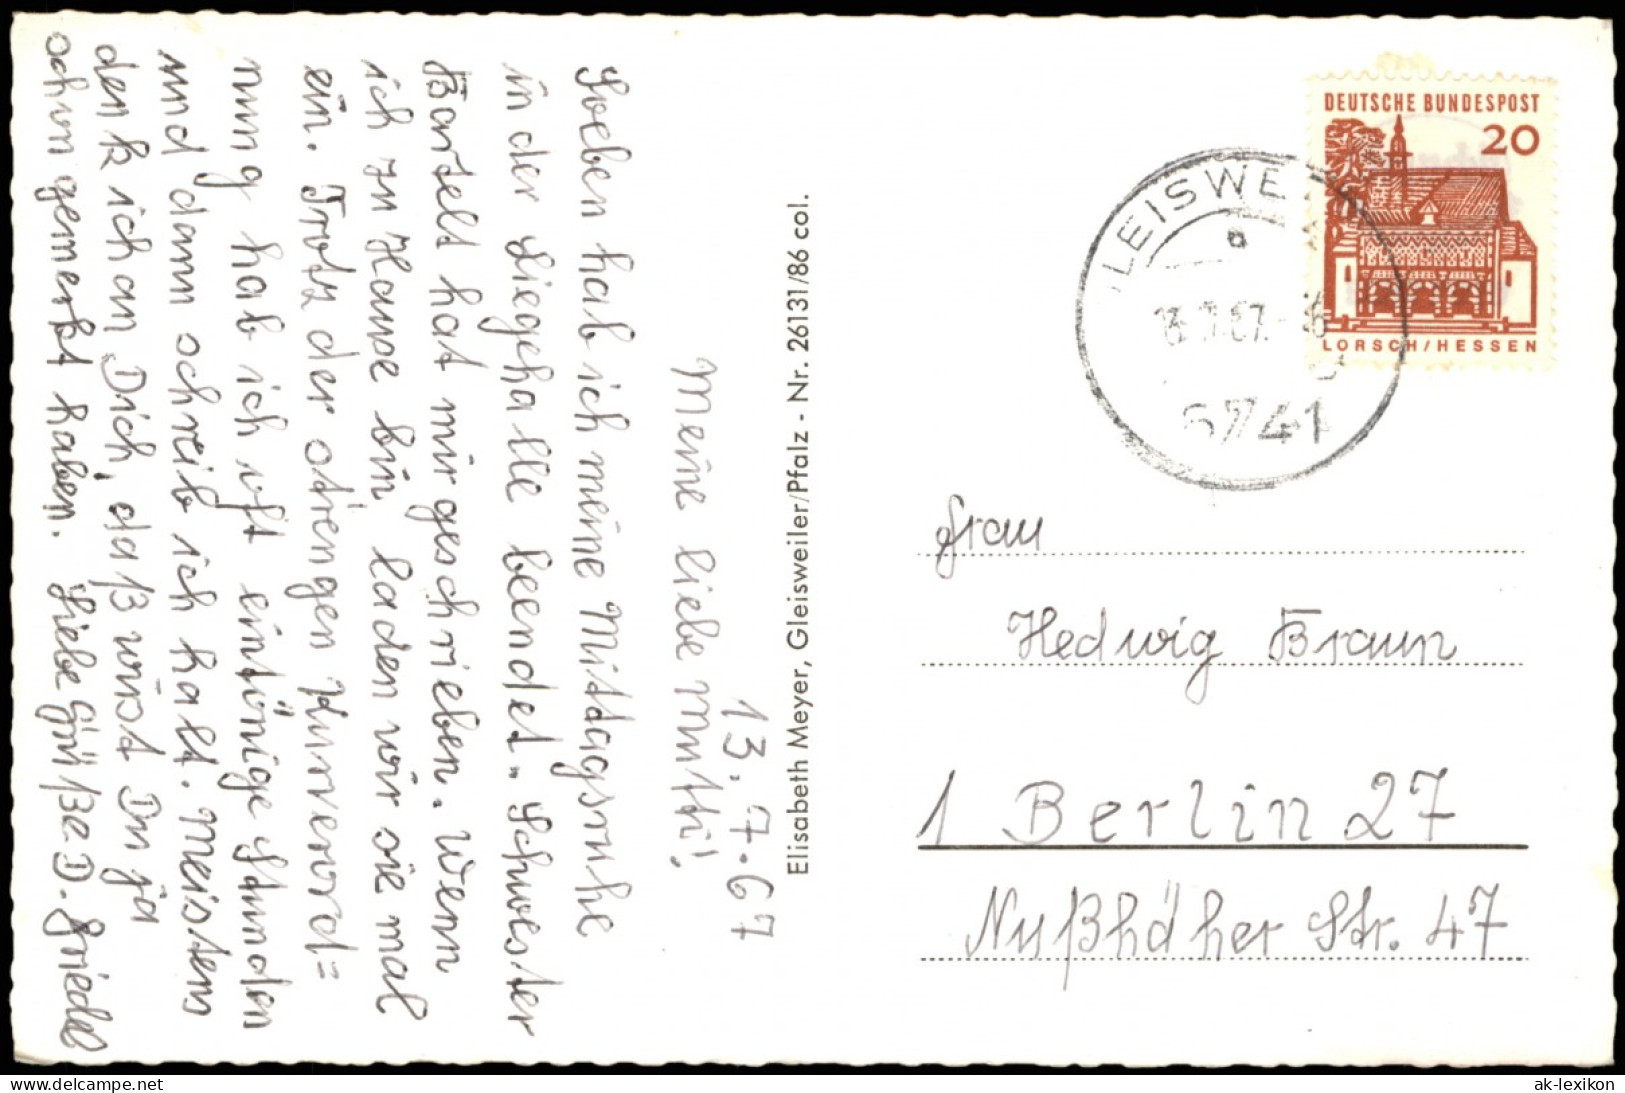 13.7.67
Meine liebe Mutti!
Soeben hab ich meine Mittagsruhe
in der Liegehalle beendet. Schwester
Bartelt hat mir geschrieben. Wenn
ich zu Hause bin, laden wir sie mal
ein. Trotz der strengen Kurverord=
nung hab ich oft eintönige Stunden
und dann schreib ich halt. Meistens
denk ich an Dich, daß wirst Du ja
schon gemerkt haben. Liebe Grüße D. Friedel
Elisabeth Meyer, Gleisweiler/Pfalz - Nr. 26131/86 col.
DEUTSCHE BUNDESPOST
20
LORSCH/HESSEN
LEISWE
a
13.7.67
6741
Frau
Hedwig Braun
1 Berlin 27
Nußhäher Str. 47
www.delcampe.net
ak-lexikon